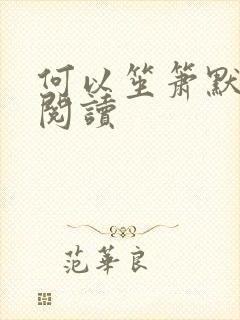 何以笙箫默
閱讀
范華良